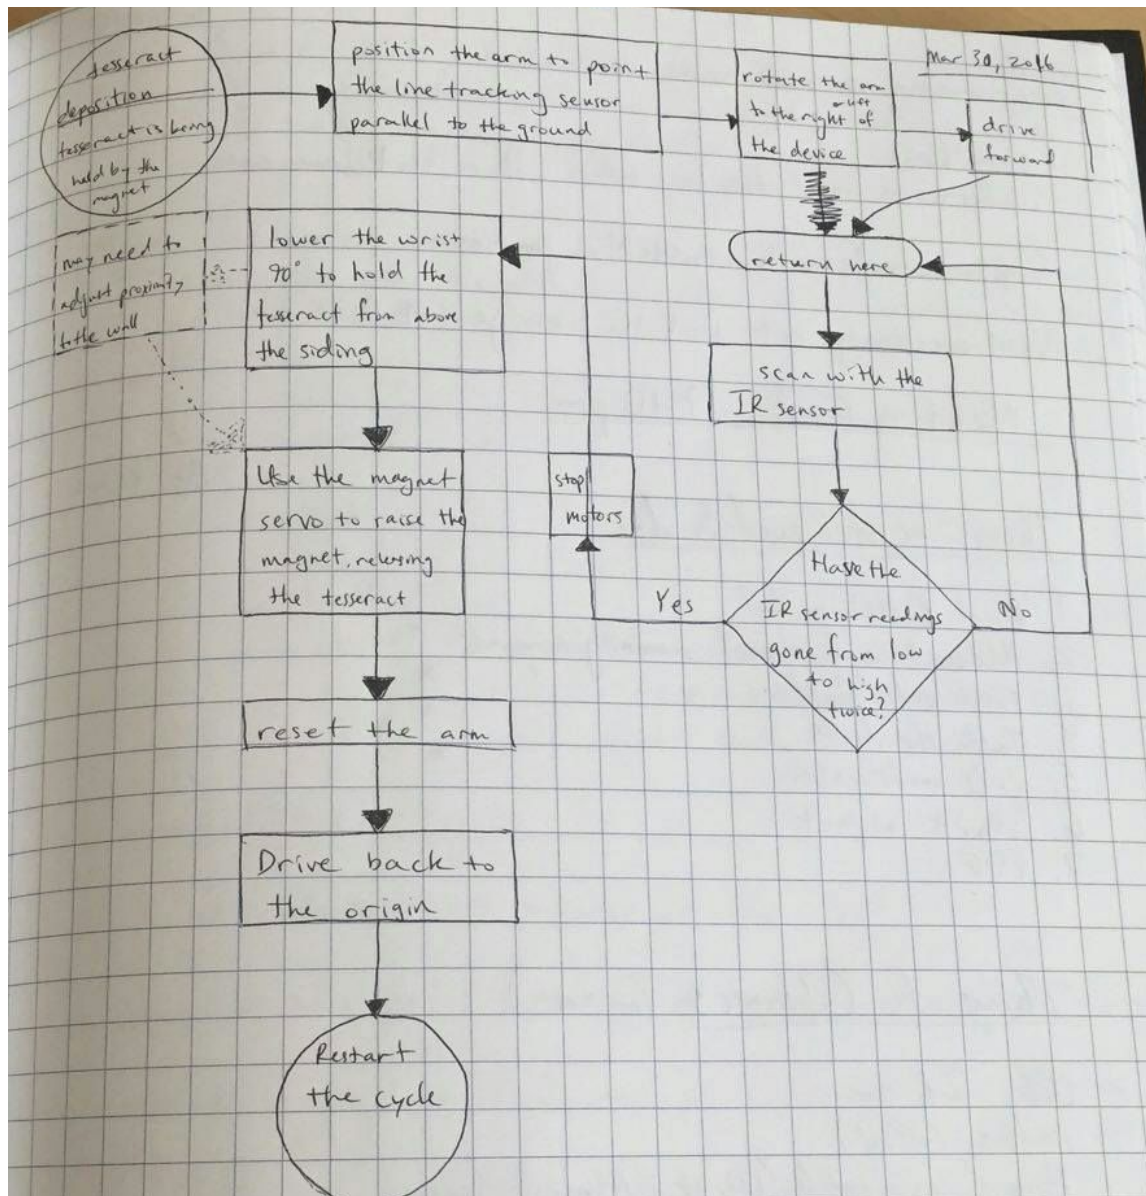 Mar 30, 2016
tesseract
deposition
tesseract is being
held by the
magnet
position the arm to point
the line tracking sensor
parallel to the ground
rotate the arm
or left
to the right of
the device
drive
forward
return here
scan with the
IR sensor
Have the
IR sensor readings
gone from low
to high
twice?
No
Yes
stop
motors
lower the wrist
90° to hold the
tesseract from above
the siding
may need to
adjust proximity
to the wall
Use the magnet
servo to raise the
magnet, releasing
the tesseract
reset the arm
Drive back to
the origin
Restart
the cycle